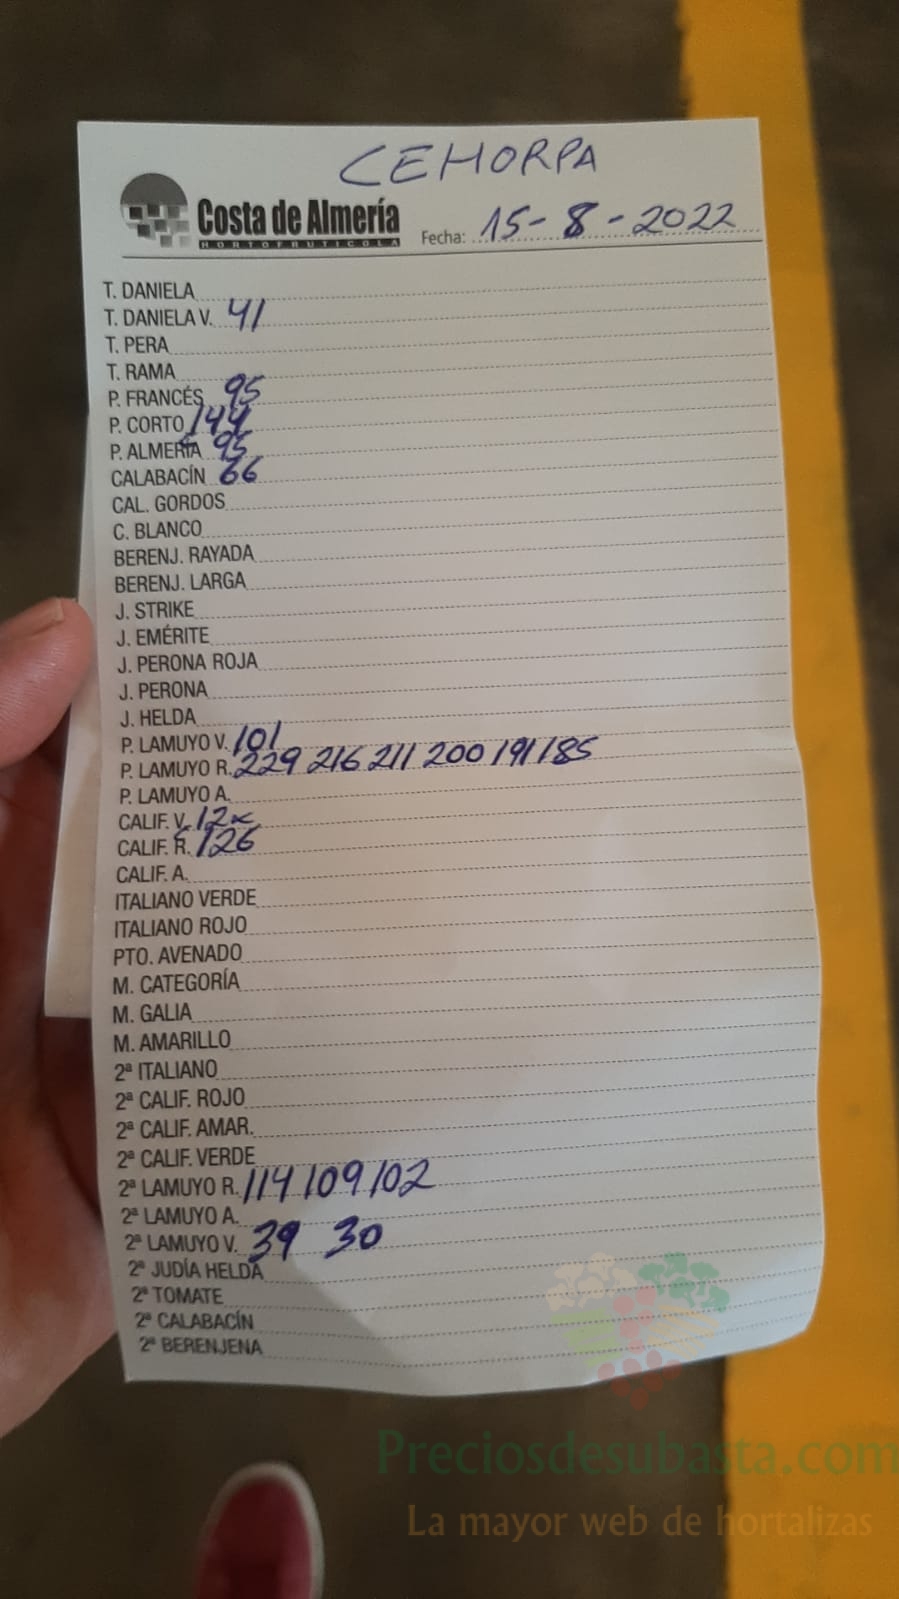 CEHORPA
Costa de Almería
HORTOFRUTICOLA
Fecha: 15-8-2022
T. DANIELA
T. DANIELA V. 41
T. PERA
T. RAMA
P. FRANCÉS 95
P. CORTO 144
P. ALMERÍA 95
CALABACÍN 66
CAL. GORDOS
C. BLANCO
BERENJ. RAYADA
BERENJ. LARGA
J. STRIKE
J. EMÉRITE
J. PERONA ROJA
J. PERONA
J. HELDA
P. LAMUYO V. 101
P. LAMUYO R. 229 216 211 200 191 185
P. LAMUYO A.
CALIF. V.
CALIF. R. 126
CALIF. A.
ITALIANO VERDE
ITALIANO ROJO
PTO. AVENADO
M. CATEGORÍA
M. GALIA
M. AMARILLO
2ª ITALIANO
2ª CALIF. ROJO
2ª CALIF. AMAR.
2ª CALIF. VERDE
2ª LAMUYO R. 114 109 102
2ª LAMUYO A.
2ª LAMUYO V. 39 30
2ª JUDÍA HELDA
2ª TOMATE
2ª CALABACÍN
2ª BERENJENA
Preciosdesubasta.com
La mayor web de hortalizas